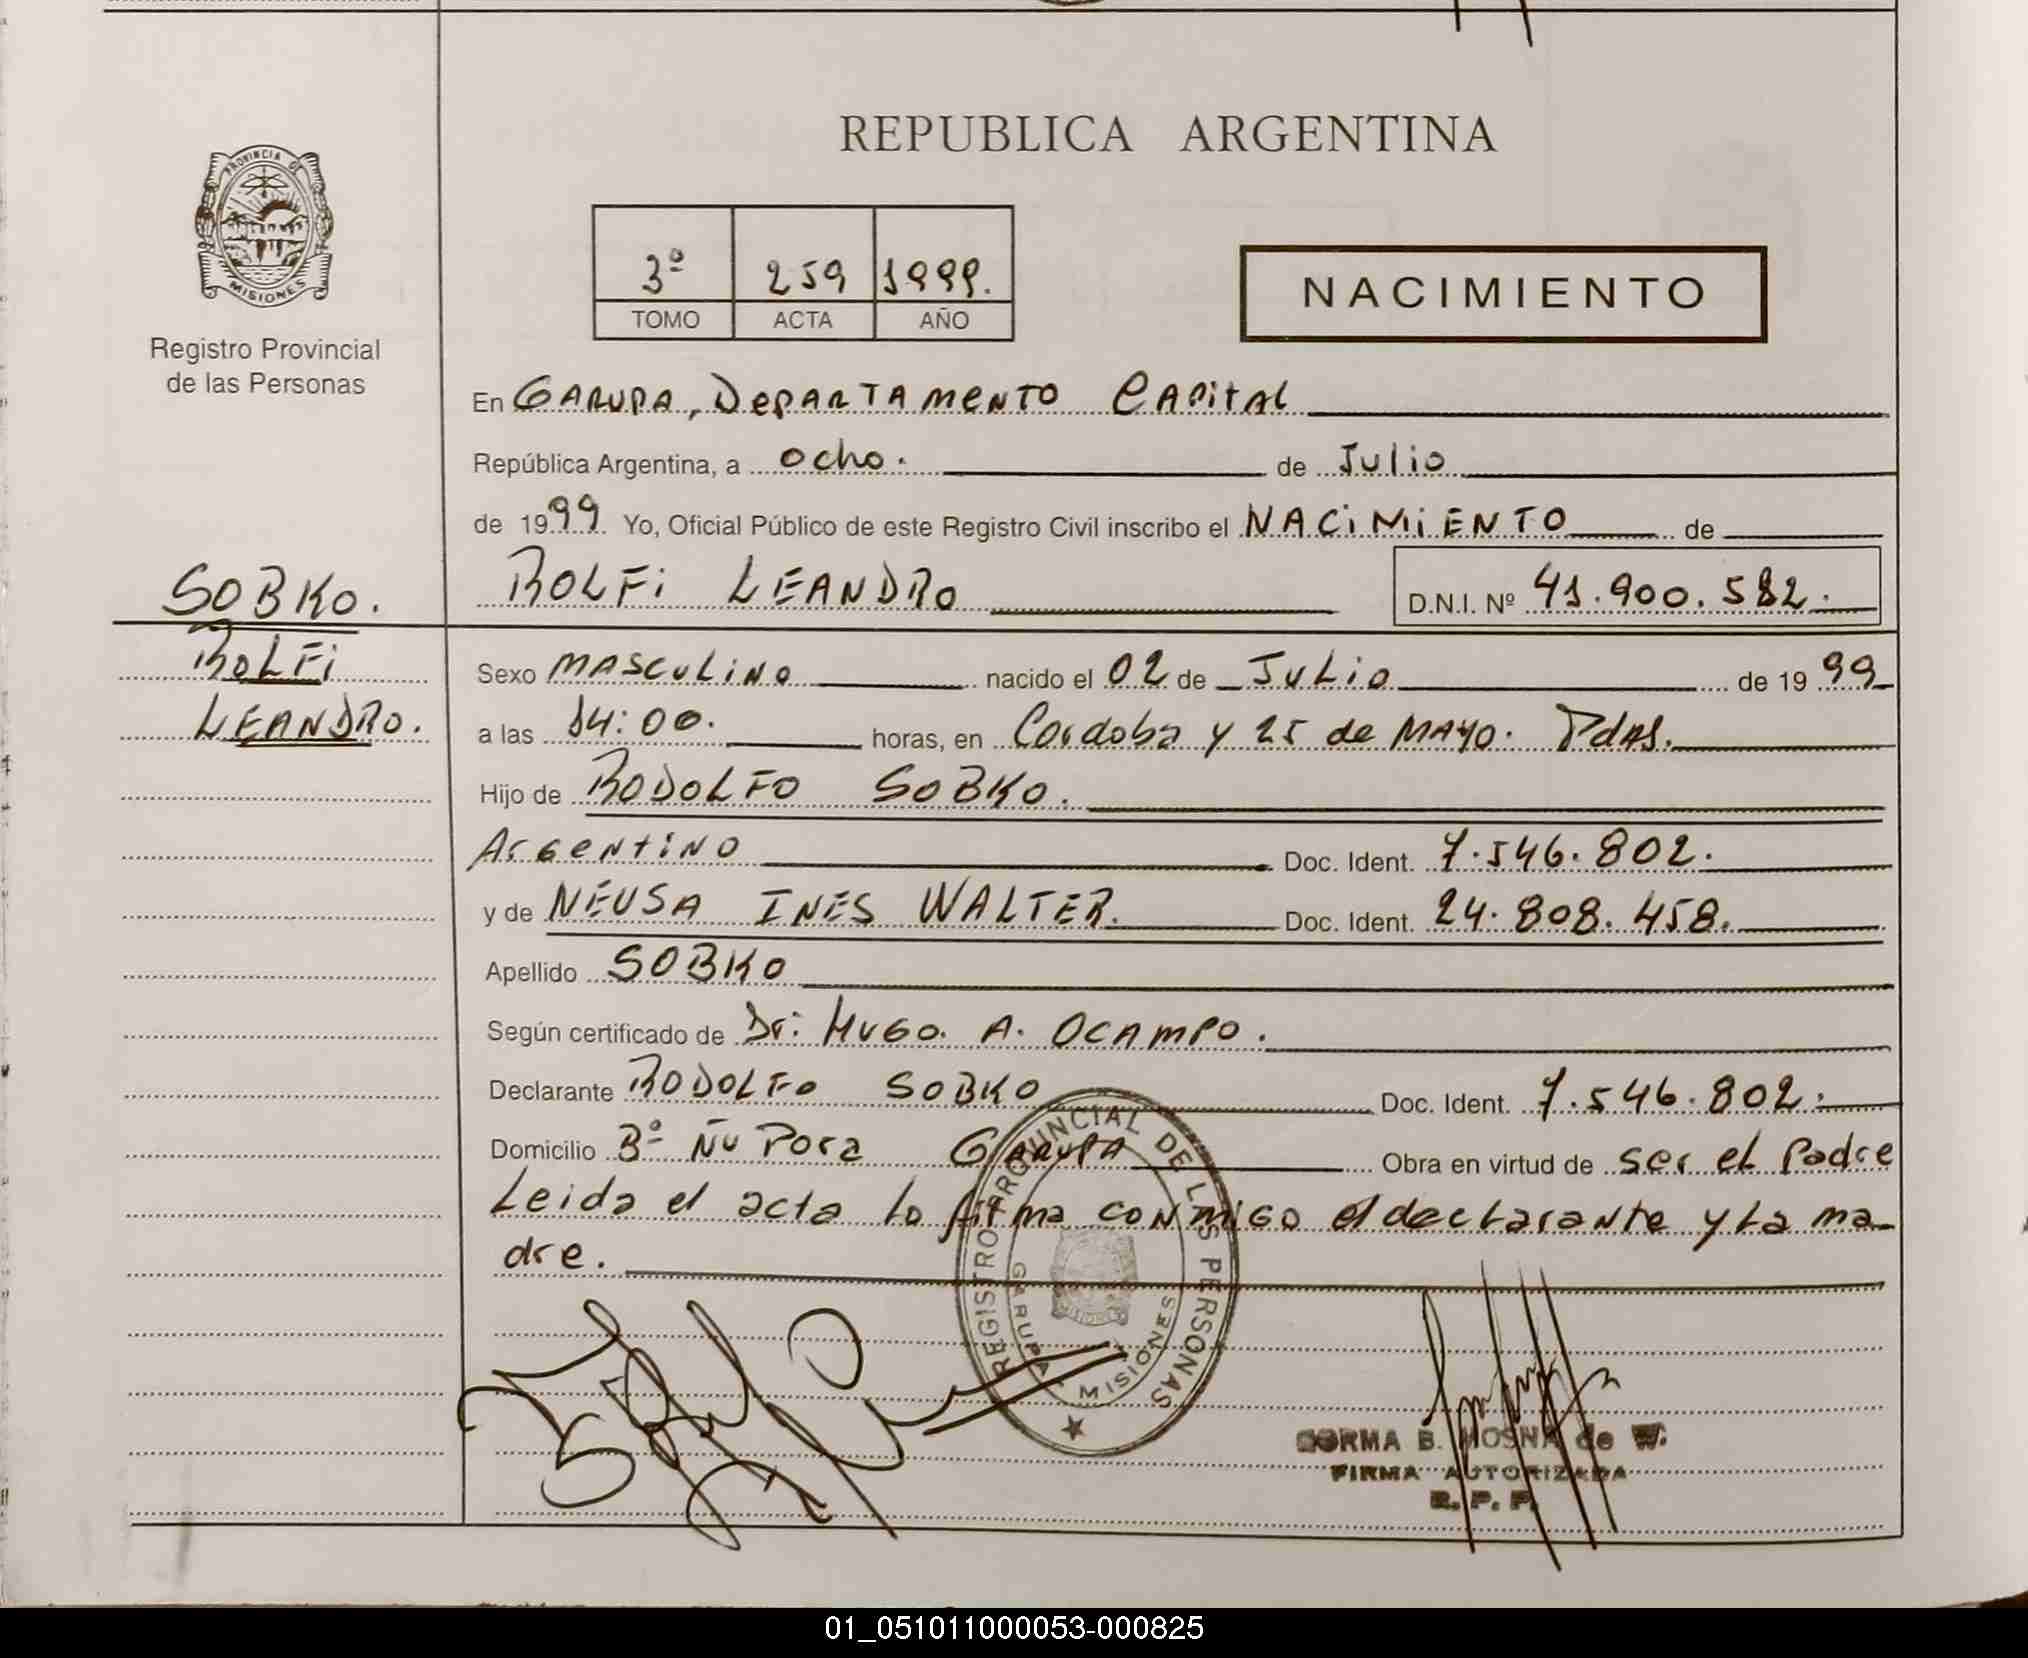 REPUBLICA ARGENTINA
PROVINCIA DE
MISIONES
Registro Provincial
de las Personas
3º 259 1999.
TOMO ACTA AÑO
NACIMIENTO
En GARUPA, DEPARTAMENTO CAPITAL
República Argentina, a ocho. de Julio
de 1999. Yo, Oficial Público de este Registro Civil inscribo el NACIMIENTO de
ROLFI LEANDRO D.N.I. Nº 41.900.582.
SOBKO.
ROLFI
LEANDRO.
Sexo MASCULINO nacido el 02 de JULIO de 1999
a las 14:00. horas, en Cordoba y 25 de MAYO. Pdas.
Hijo de RODOLFO SOBKO.
Argentino Doc. Ident. 7.546.802.
y de NEUSA INES WALTER. Doc. Ident. 24.808.458.
Apellido SOBKO
Según certificado de Dr: HUGO. A. OCAMPO.
Declarante RODOLFO SOBKO Doc. Ident. 7.546.802.
Domicilio Bº ÑU PORA GARUPA Obra en virtud de ser el Padre
Leida el acta lo firma conmigo el declarante y la ma-
dre.
REGISTRO PROVINCIAL DE LAS PERSONAS
GARUPA MISIONES
NORMA B. MOSNA de W.
FIRMA AUTORIZADA
R. P. P.
01_051011000053-000825